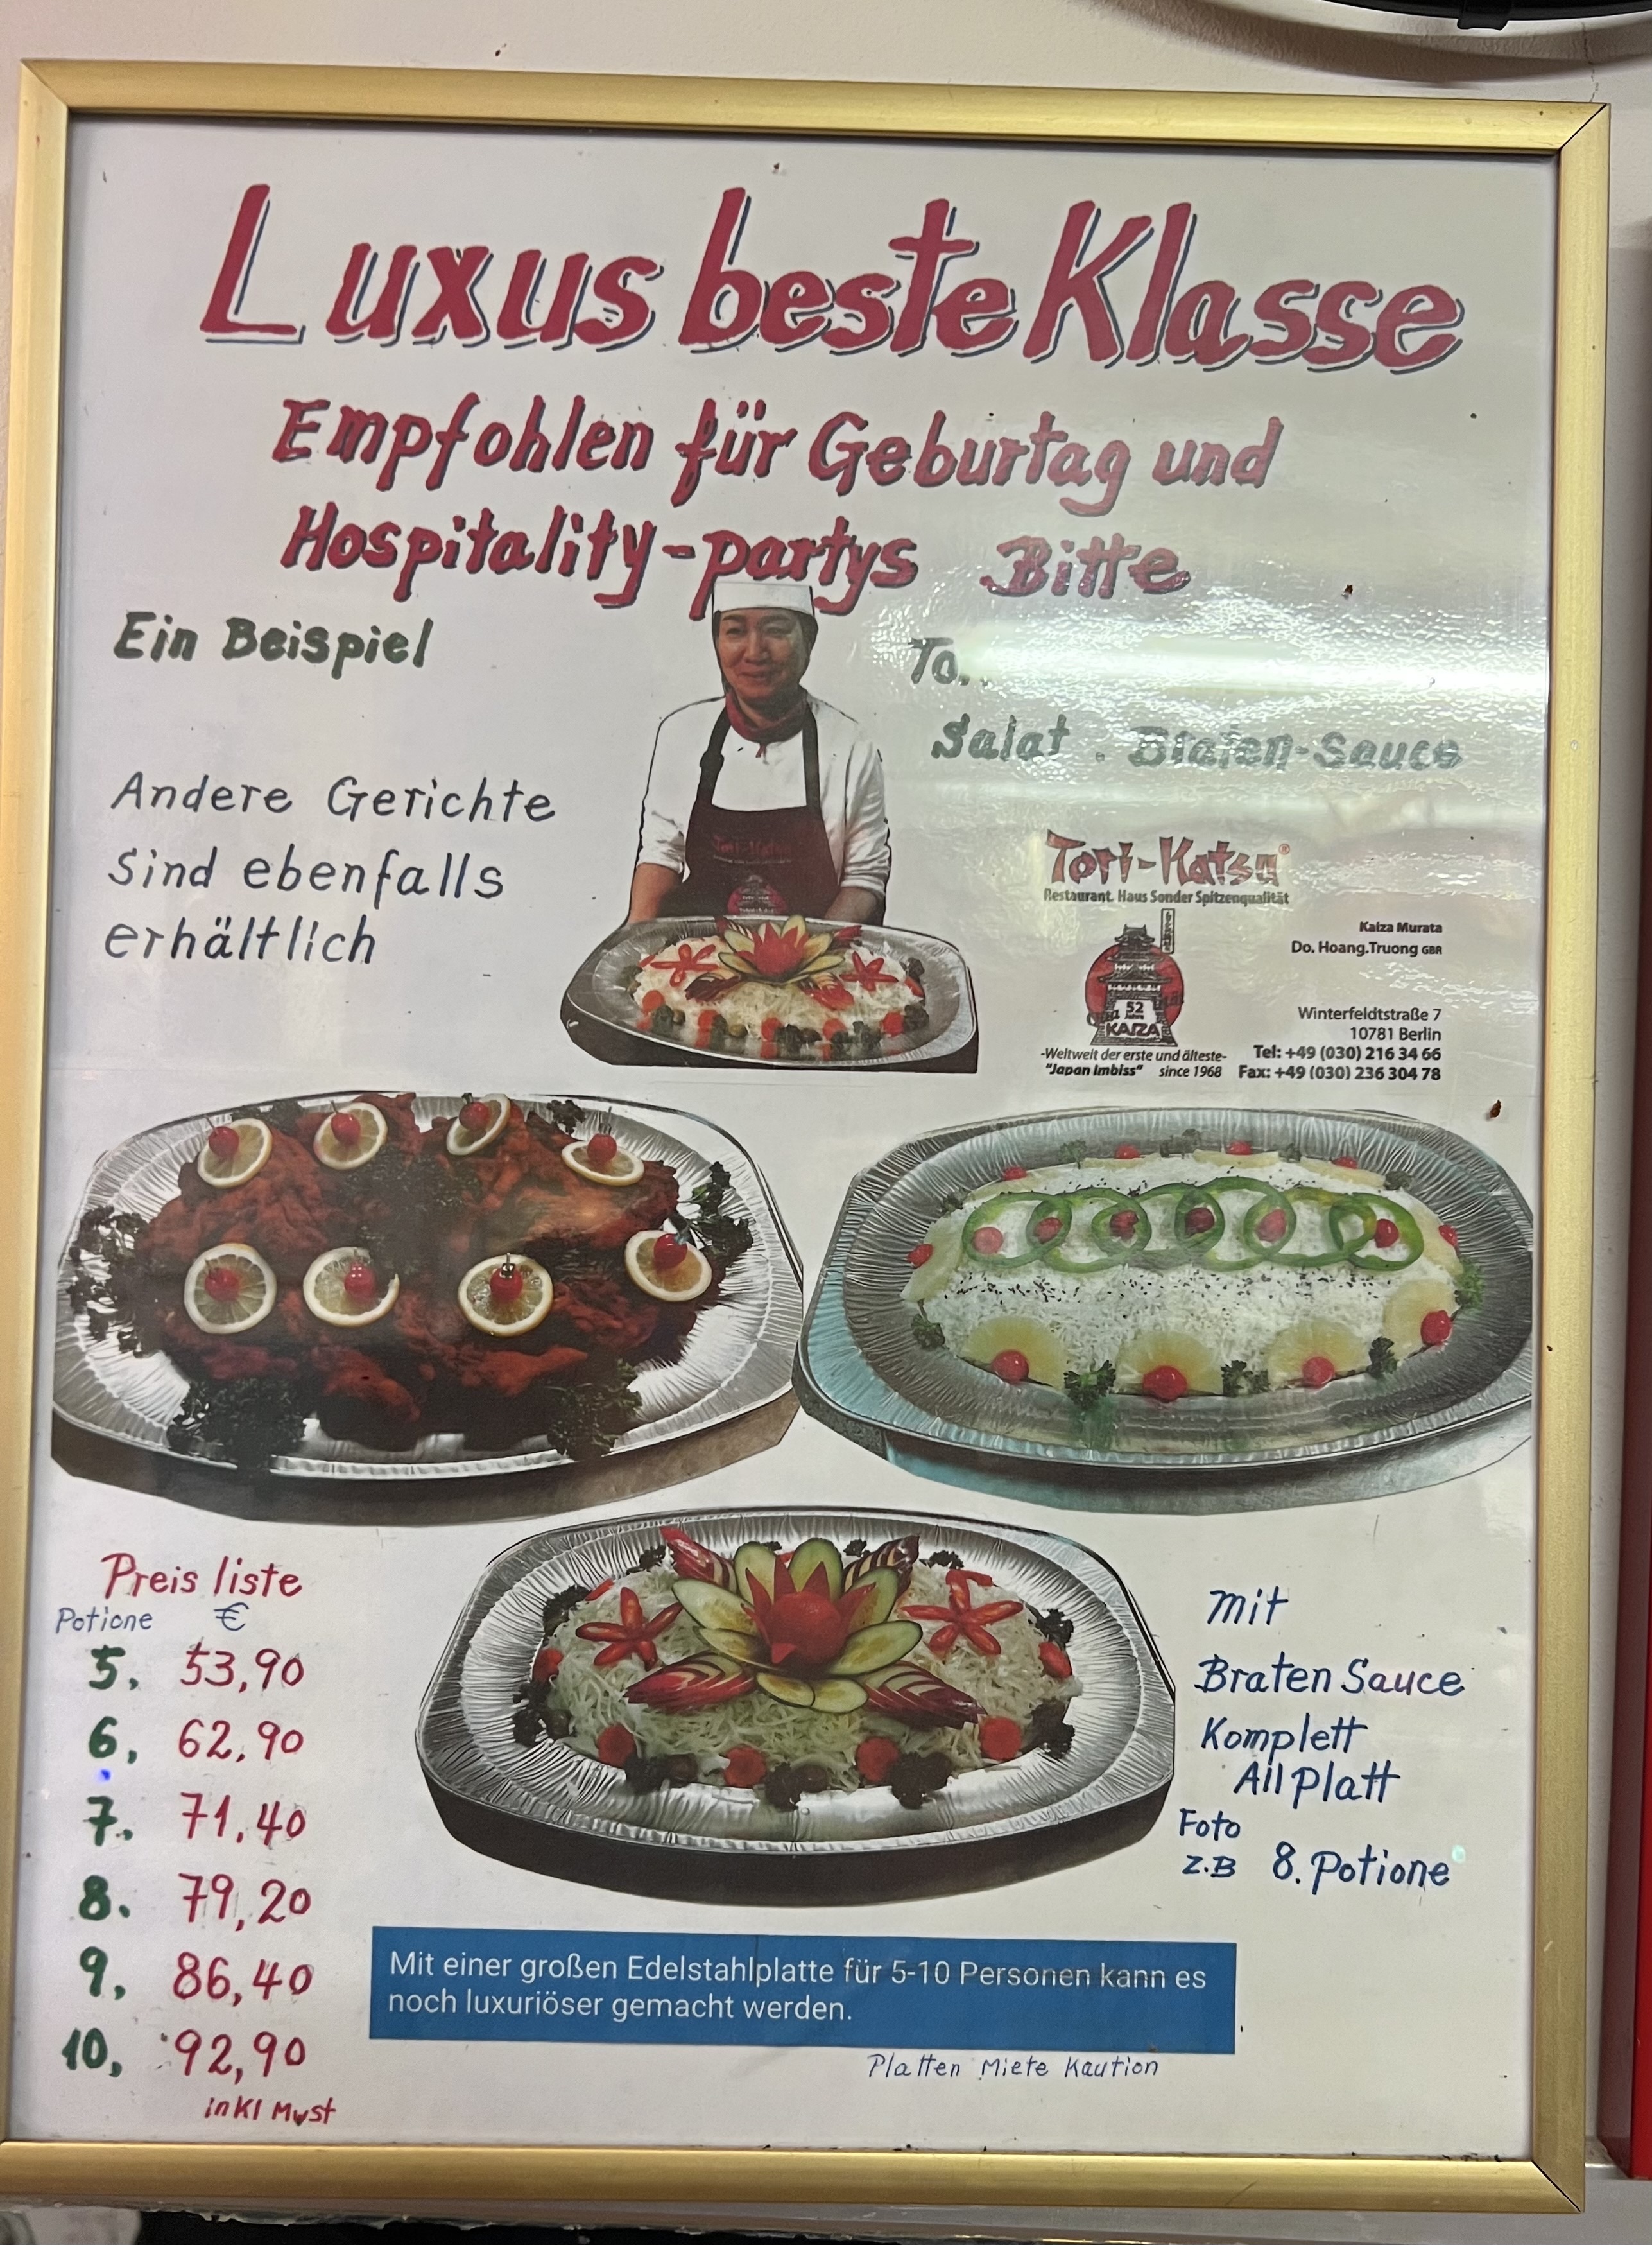 Luxus beste Klasse
Empfohlen für Geburtag und
Hospitality-partys Bitte
Ein Beispiel
Salat . Braten-Sauce
Andere Gerichte
Sind ebenfalls
erhältlich
Tori-Katsu®
Restaurant. Haus Sonder Spitzenqualität
Kaiza Murata
Do. Hoang.Truong GBR
52
KAIZA
Winterfeldtstraße 7
10781 Berlin
Tel: +49 (030) 216 34 66
Fax: +49 (030) 236 304 78
-Weltweit der erste und älteste-
"Japan Imbiss" since 1968
Preis liste
Potione €
5. 53,90
6, 62,90
7. 71,40
8. 79,20
9, 86,40
10, 92,90
inkl Mwst
mit
Braten Sauce
Komplett
All Platt
Foto
z.B 8. Potione
Mit einer großen Edelstahlplatte für 5-10 Personen kann es
noch luxuriöser gemacht werden.
Platten Miete Kaution